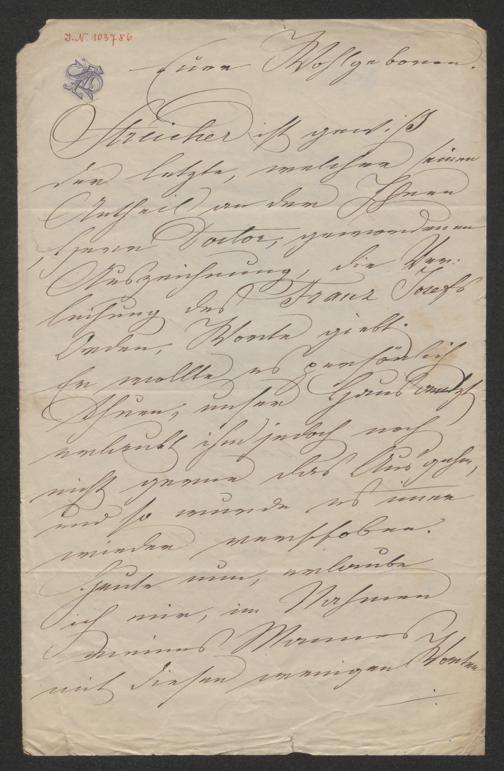 I. N. 103786
Euer Wohlgeboren.
Streicher ist gewiß
der letzte, welcher seinen
Antheil an der Ihnen
Herr Doctor, gewordenen
Auszeichnung, die Ver-
leihung des Franz Josefs
Orden, Worte giebt.
Er wollte es persönlich
thuen, unser Hausarzt
erlaubt ihm jedoch noch
nicht gerne das Ausgehen,
und so wurde es immer
wieder verschoben.
Heute nun, erlaube
ich mir, im Nahmen
meines Mannes
mit diesen wenigen Worten